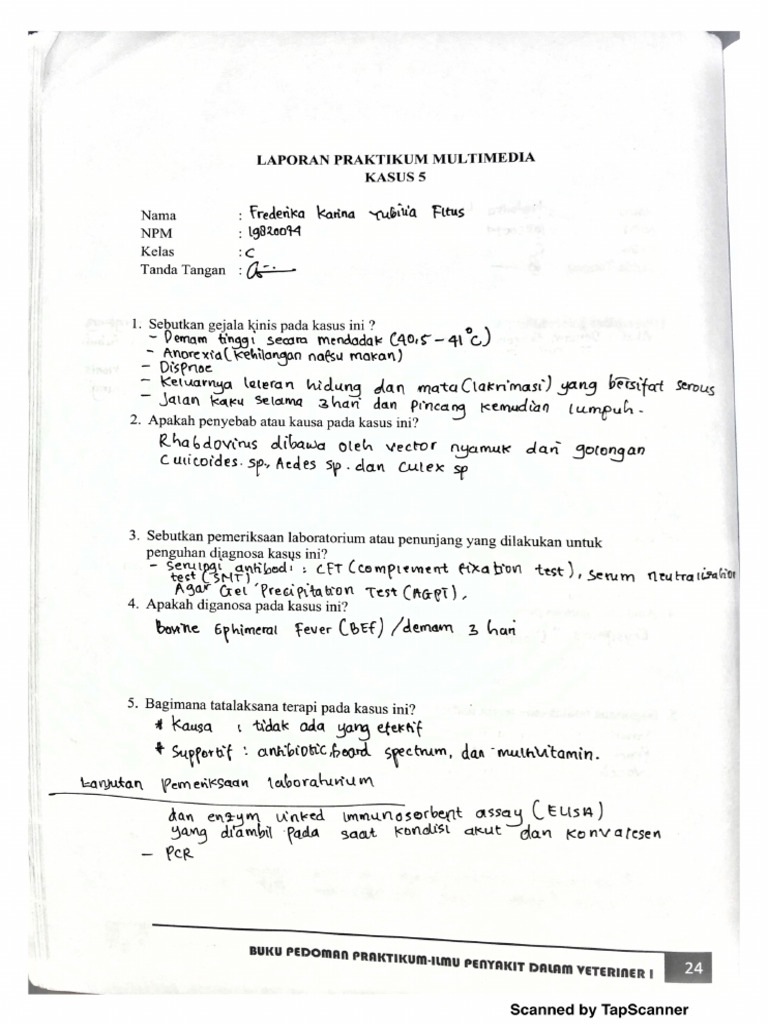 LAPORAN PRAKTIKUM MULTIMEDIA
KASUS 5
Nama : Frederika Karina Yubilia Fltus
NPM : 19820094
Kelas : C
Tanda Tangan :
1. Sebutkan gejala kinis pada kasus ini ?
- Demam tinggi secara mendadak (40,5 - 41°C)
- Anorexia (kehilangan nafsu makan)
- Dispnoe
- Keluarnya leleran hidung dan mata (lakrimasi) yang bersifat serous
- Jalan kaku selama 3 hari dan pincang kemudian lumpuh.
2. Apakah penyebab atau kausa pada kasus ini?
Rhabdovirus dibawa oleh vector nyamuk dari golongan
Culicoides. sp., Aedes sp. dan Culex sp
3. Sebutkan pemeriksaan laboratorium atau penunjang yang dilakukan untuk
penguhan diagnosa kasus ini?
- Serulogi antibodi : CFT (complement fixation test), serum neutralisation
test (SMT)
Agar Gel Precipitation Test (AGPT),
4. Apakah diganosa pada kasus ini?
Bovine Ephimeral Fever (BEF) / demam 3 hari
5. Bagimana tatalaksana terapi pada kasus ini?
* Kausa : tidak ada yang efektif
* Supportif : antibiotic board spectrum, dan multivitamin.
Lanjutan Pemeriksaan laboraturium
dan enzym linked immunosorbent assay (ELISA)
yang diambil pada saat kondisi akut dan konvalesen
- PCR
BUKU PEDOMAN PRAKTIKUM-ILMU PENYAKIT DALAM VETERINER I 24
Scanned by TapScanner